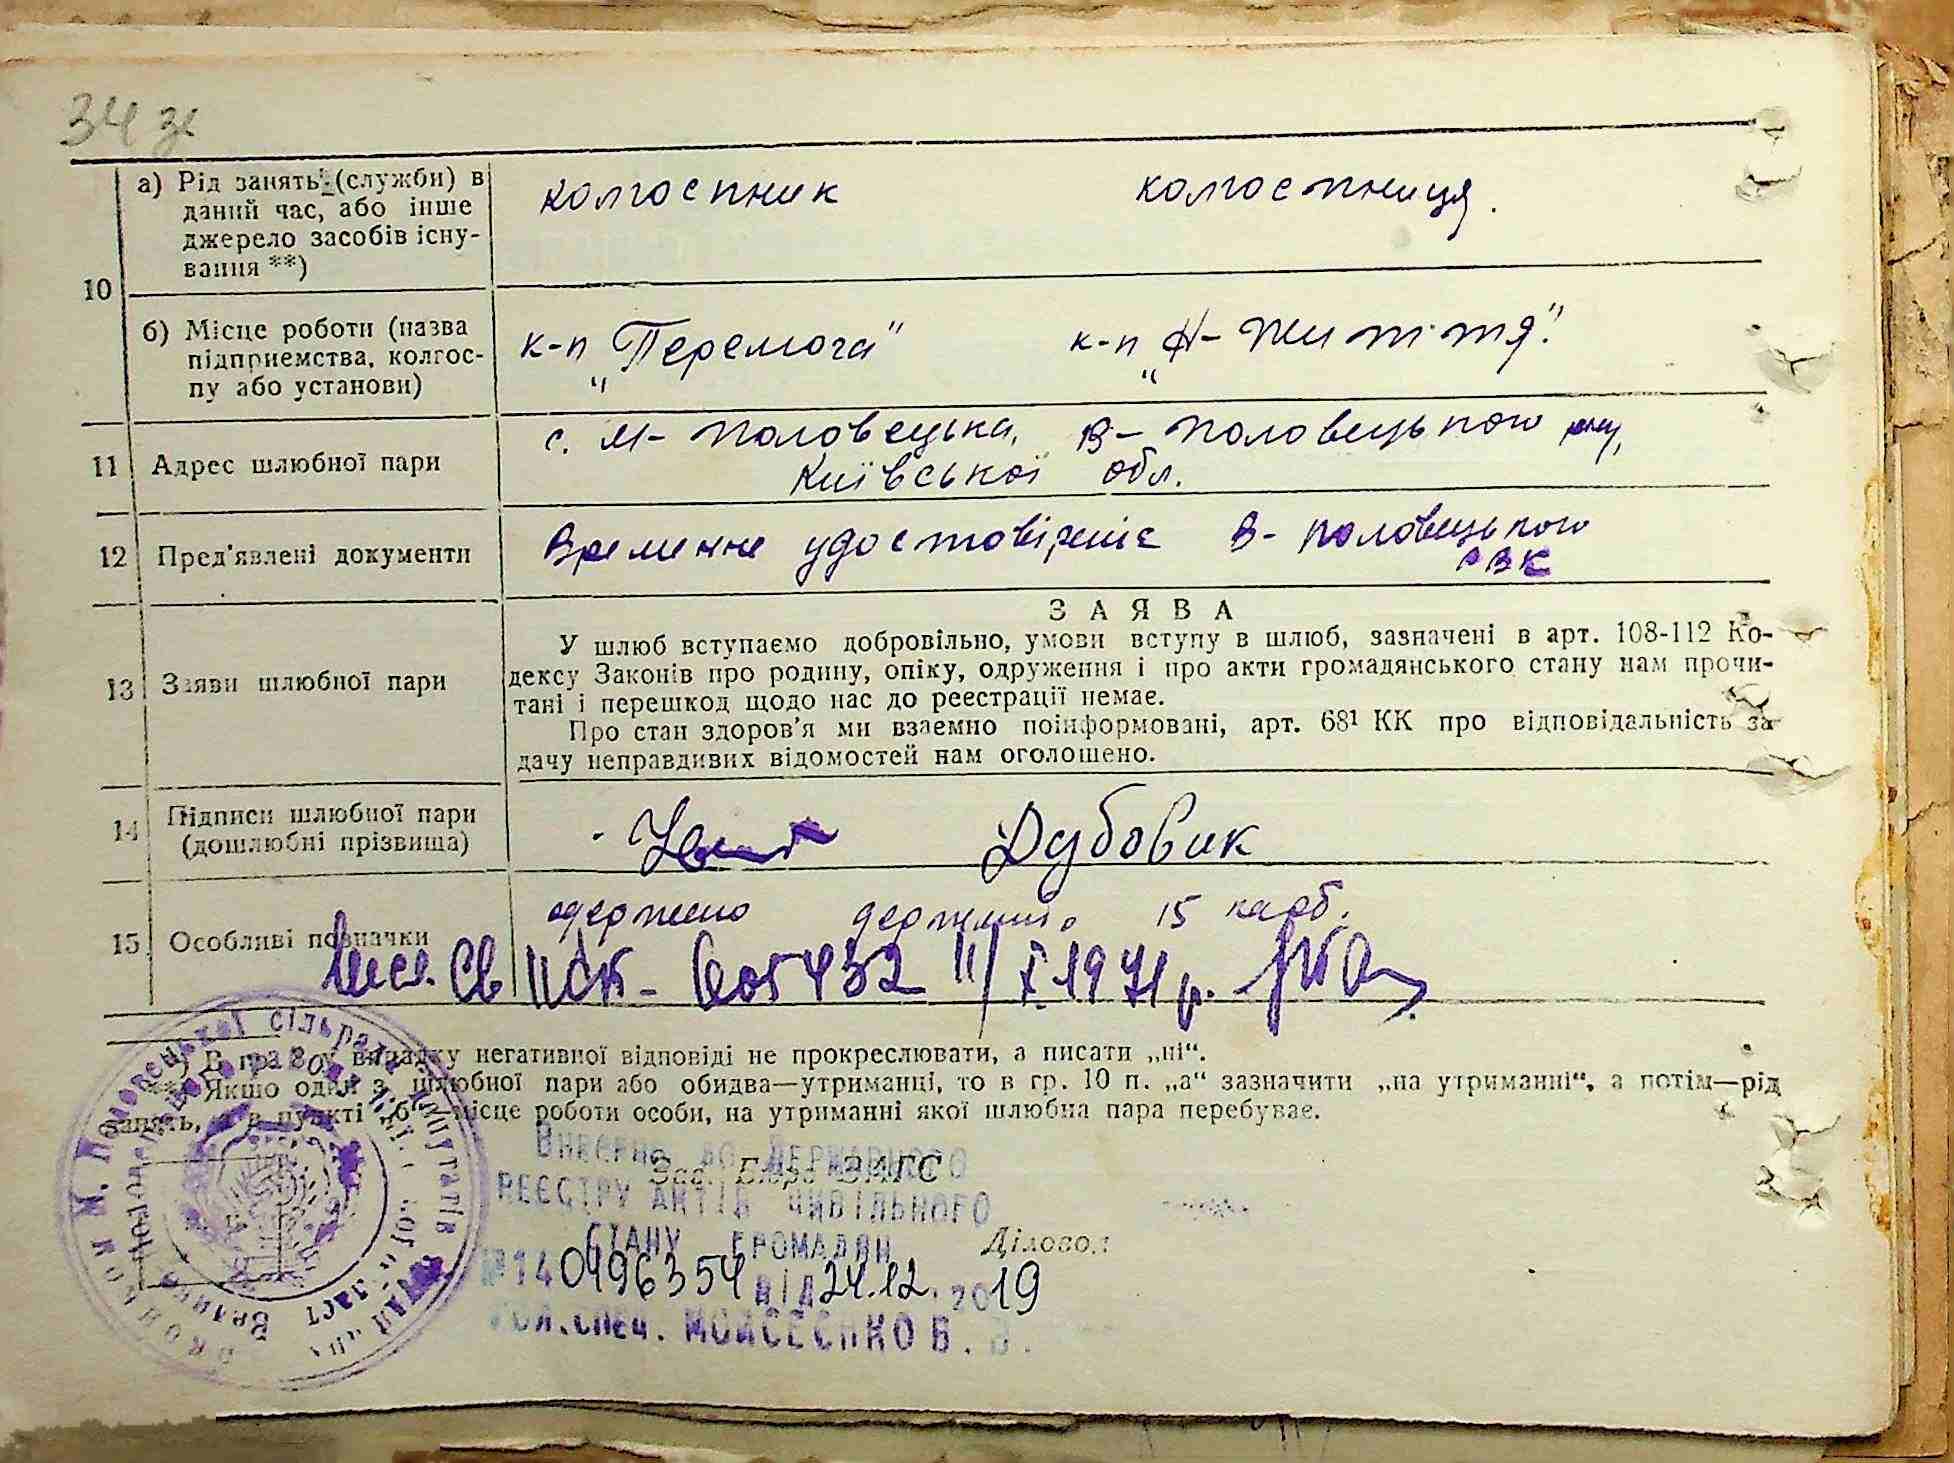 34 зв
10 а) Рід занять (служби) в даний час, або інше джерело засобів існування **) колгоспник колгоспниця.
б) Місце роботи (назва підприємства, колгоспу або установи) к-п „Перемога" к-п „Н-Життя".
11 Адрес шлюбної пари с. М-Половецька, В-Половецького
Київської обл.
12 Пред'явлені документи Временне В-Половецького
РВК
13 Заяви шлюбної пари
ЗАЯВА
У шлюб вступаємо добровільно, умови вступу в шлюб, зазначені в арт. 108-112 Ко-
дексу Законів про родину, опіку, одруження і про акти громадянського стану нам прочи-
тані і перешкод щодо нас до реєстрації немає.
Про стан здоров'я ми взаємно поінформовані, арт. 68¹ КК про відповідальність за
дачу неправдивих відомостей нам оголошено.
14 Підписи шлюбної пари
(дошлюбні прізвища) Дубовик
15 Особливі позначки 15 карб.
1971 р.
*) В гра 8 у випадку негативної відповіді не прокреслювати, а писати „ні“.
**) Якщо один з шлюбної пари або обидва—утриманці, то в гр. 10 п. „а“ зазначити „на утриманні“, а потім—рід
занять, а в пункті „б“ місце роботи особи, на утриманні якої шлюбна пара перебуває.
Зав. Бюро ЗАГС
Внесено до Державного
реєстру актів цивільного
стану громадян
Діловод
№ 140496354 від 24.12.2019
Гол.спец. Моисеєнко В. В.